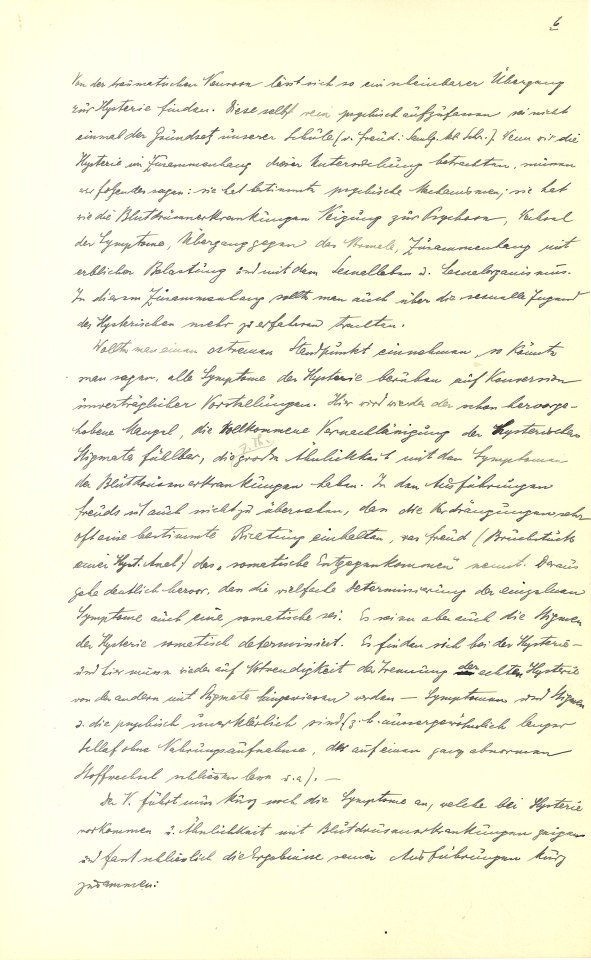 6
Von der traumatischen Neurose lässt sich so ein scheinbarer Übergang
zur Hysterie finden. Diese selbst rein psychisch aufzufassen sei nicht
einmal der Grundsatz unserer Schule (v. Freud: Samlg. kl. Schr.). Wenn wir die
Hysterie im Zusammenhang dieser Untersuchung betrachten, müssen
wir folgendes sagen: sie hat bestimmte psychische Mechanismen; sie hat
wie die Blutdrüsenerkrankungen Neigung zur Psychose, Wechsel
der Symptome, Übergang gegen das Normale, Zusammenhang mit
erblicher Belastung und mit dem Sexualleben u. Sexualorganismus.
In diesem Zusammenhang sollte man auch über die sexuelle Jugend
des Hysterischen mehr zu erfahren trachten.
Wollte man einen extremen Standpunkt einnehmen, so könnte
man sagen, alle Symptome der Hysterie beruhen auf Konversion
unverträglicher Vorstellungen. Hier wird wieder der schon hervorge-
hobene Mangel, die vollkommene Vernachlässigung der hysterischen
Stigmata fühlbar, die grosse Ähnlichkeit mit den Symptomen
z. Th.
der Blutdrüsenerkrankungen haben. In den Ausführungen
Freuds ist auch nicht zu übersehen, dass die Verdrängungen sehr
oft eine bestimmte Richtung einhalten, was Freud (Bruchstück
einer Hyst. Anal.) das „somatische Entgegenkommen" nennt. Daraus
gehe deutlich hervor, dass die vielfache Determinierung der einzelnen
Symptome auch eine somatische sei. Es seien aber auch die Stigmen
der Hysterie somatisch determiniert. Es finden sich bei der Hysterie –
und hier muss wieder auf Notwendigkeit der Trennung der echten Hysterie
von der andern mit Stigmata hingewiesen werden – Symptome und Stigmen
u. die psychisch unerklärlich sind (z. b. aussergewöhnlich langer
Schlaf ohne Nahrungsaufnahme, der auf einen ganz abnormen
Stoffwechsel schliessen lasse u. a.). —
Der V. führt nun kurz noch die Symptome an, welche bei Hysterie
vorkommen u. Ähnlichkeit mit Blutdrüsenerkrankungen zeigen
und fasst schliesslich die Ergebnisse seiner Ausführungen kurz
zusammen: